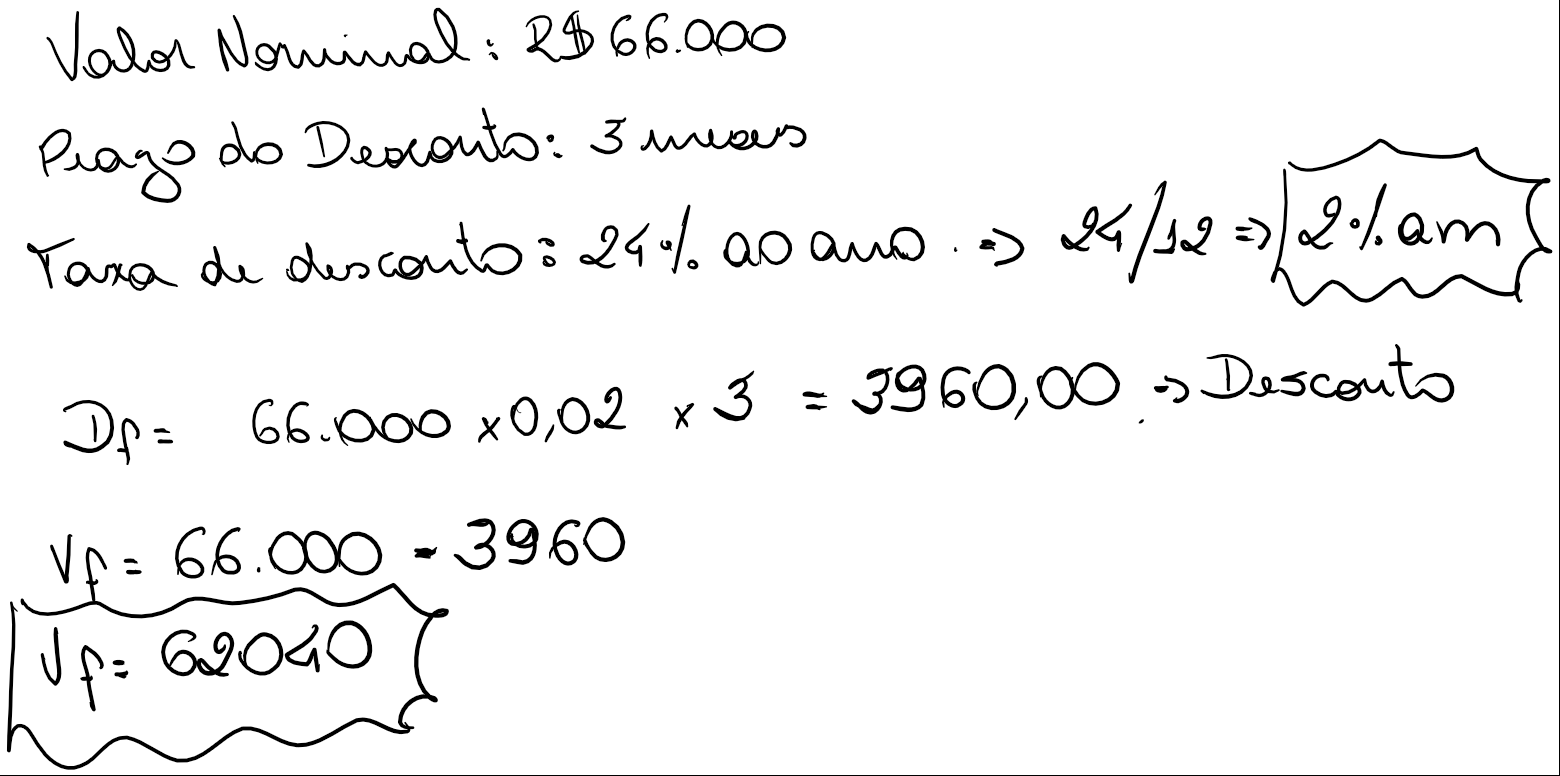 Valor Nominal: R$ 66.000
Prazo do Desconto: 3 meses
Taxa de desconto: 24% ao ano. => 24/12 => 2% am
Df = 66.000 x 0,02 x 3 = 3960,00 -> Desconto
Vf = 66.000 - 3960
Vf = 62040